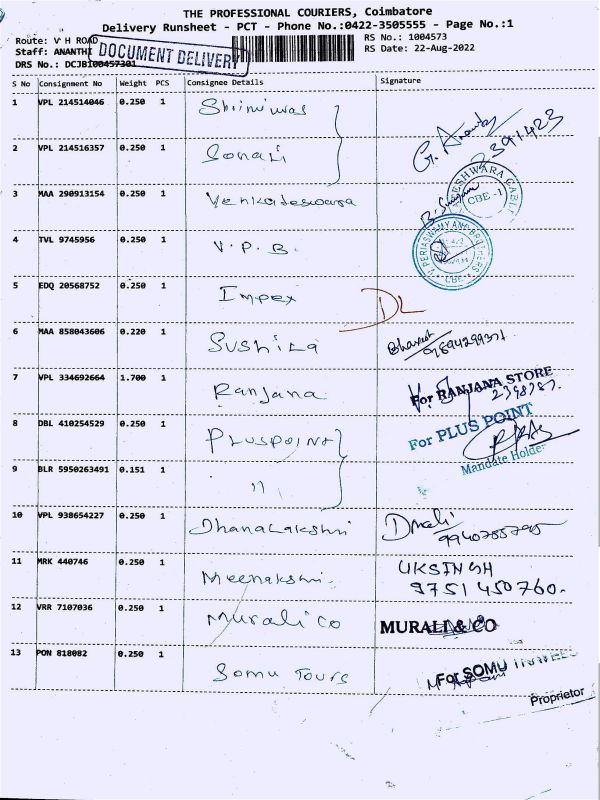 THE PROFESSIONAL COURIERS, Coimbatore
Delivery Runsheet - PCT - Phone No.:0422-3505555 - Page No.:1
Route: V H ROAD
RS No.: 1004573
Staff: ANANTHI
RS Date: 22-Aug-2022
DOCUMENT DELIVERY
DRS No.: DCJB100457301
S No Consignment No Weight PCS Consignee Details Signature
1 VPL 214514046 0.250 1 Shrinivas
2 VPL 214516357 0.250 1 Sonali G. 2391423
3 MAA 290913154 0.250 1 Venkateswara CBE-1
4 TVL 9745956 0.250 1 V.P.B. V. PERIASWAMY AND BROTHERS CBE
5 EDQ 20568752 0.250 1 Impex DL
6 MAA 858043606 0.220 1 Sushila Bharat
7 VPL 334692664 1.700 1 Ranjana For RANJANA STORE
2398787.
8 DBL 410254529 0.250 1 PLUSPOINT For PLUS POINT
Mandate Holder
9 BLR 5950263491 0.151 1 "
10 VPL 938654227 0.250 1 Dhanalakshmi
11 MRK 440746 0.250 1 Meenakshi. UKSINGH
9751450760.
12 VRR 7107036 0.250 1 Murali co MURALI & CO
13 PON 818082 0.250 1 Somu Tours For SOMU
Proprietor